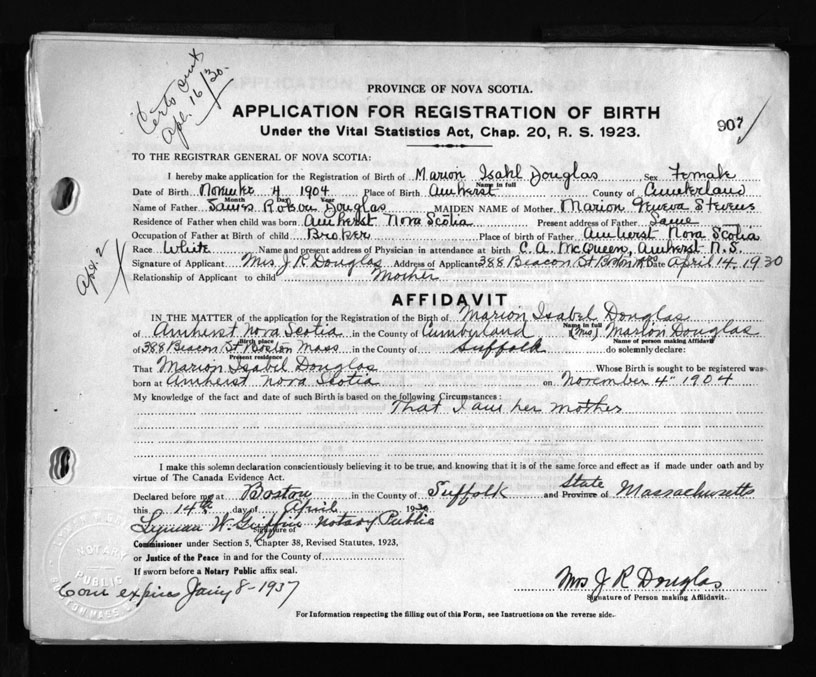 Certs sent
Apl. 16/30.
PROVINCE OF NOVA SCOTIA.
APPLICATION FOR REGISTRATION OF BIRTH
907
Under the Vital Statistics Act, Chap. 20, R. S. 1923.
TO THE REGISTRAR GENERAL OF NOVA SCOTIA:
I hereby make application for the Registration of Birth of Marion Isabl Douglas Sex Female
Name in full
Date of Birth November 4 1904 Place of Birth Amherst County of Cumberland
Month Day Year
Name of Father James Robson Douglas MAIDEN NAME of Mother Marion Geneva Stevens
Residence of Father when child was born Amherst Nova Scotia Present address of Father Same
Occupation of Father at Birth of child Broker Place of birth of Father Amherst Nova Scotia
Race White Name and present address of Physician in attendance at birth C. A. McQueen, Amherst N.S.
Signature of Applicant Mrs J. R Douglas Address of Applicant 388 Beacon St Boston Mass Date April 14, 1930
Relationship of Applicant to child Mother
Apl. 2
AFFIDAVIT
IN THE MATTER of the application for the Registration of the Birth of Marion Isabel Douglas
Name in full
of Amherst Nova Scotia in the County of Cumberland (Mrs) Marion Douglas
Birth place Name of person making Affidavit
of 388 Beacon St Boston Mass in the County of Suffolk do solemnly declare:
Present residence
That Marion Isabel Douglas Whose Birth is sought to be registered was
born at Amherst Nova Scotia on November 4" 1904
My knowledge of the fact and date of such Birth is based on the following Circumstances:
That I am her mother
I make this solemn declaration conscientiously believing it to be true, and knowing that it is of the same force and effect as if made under oath and by
virtue of The Canada Evidence Act.
Declared before me at Boston in the County of Suffolk and State Province of Massachusetts
this 14th day of April 1930
Lyman W. Griffin Notary Public
Signature of
Commissioner under Section 5, Chapter 38, Revised Statutes, 1923,
or Justice of the Peace in and for the County of
If sworn before a Notary Public affix seal.
NOTARY
PUBLIC
BOSTON MASS
Com expires Jany 8-1937
Mrs J R Douglas
Signature of Person making Affidavit.
For Information respecting the filling out of this Form, see Instructions on the reverse side.